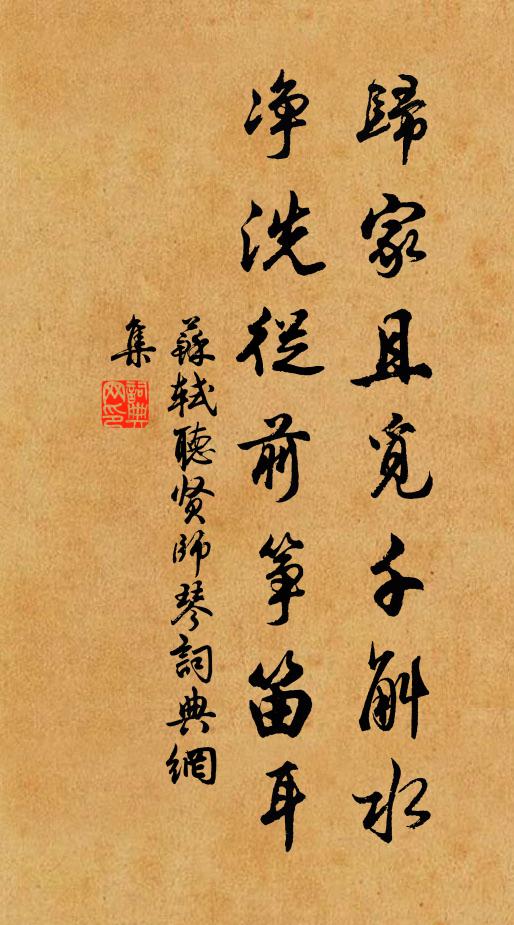 歸家且覓千斛水
净洗從前箏笛耳
蘇軾聽贤師琴詞典網
集
詞典
网印